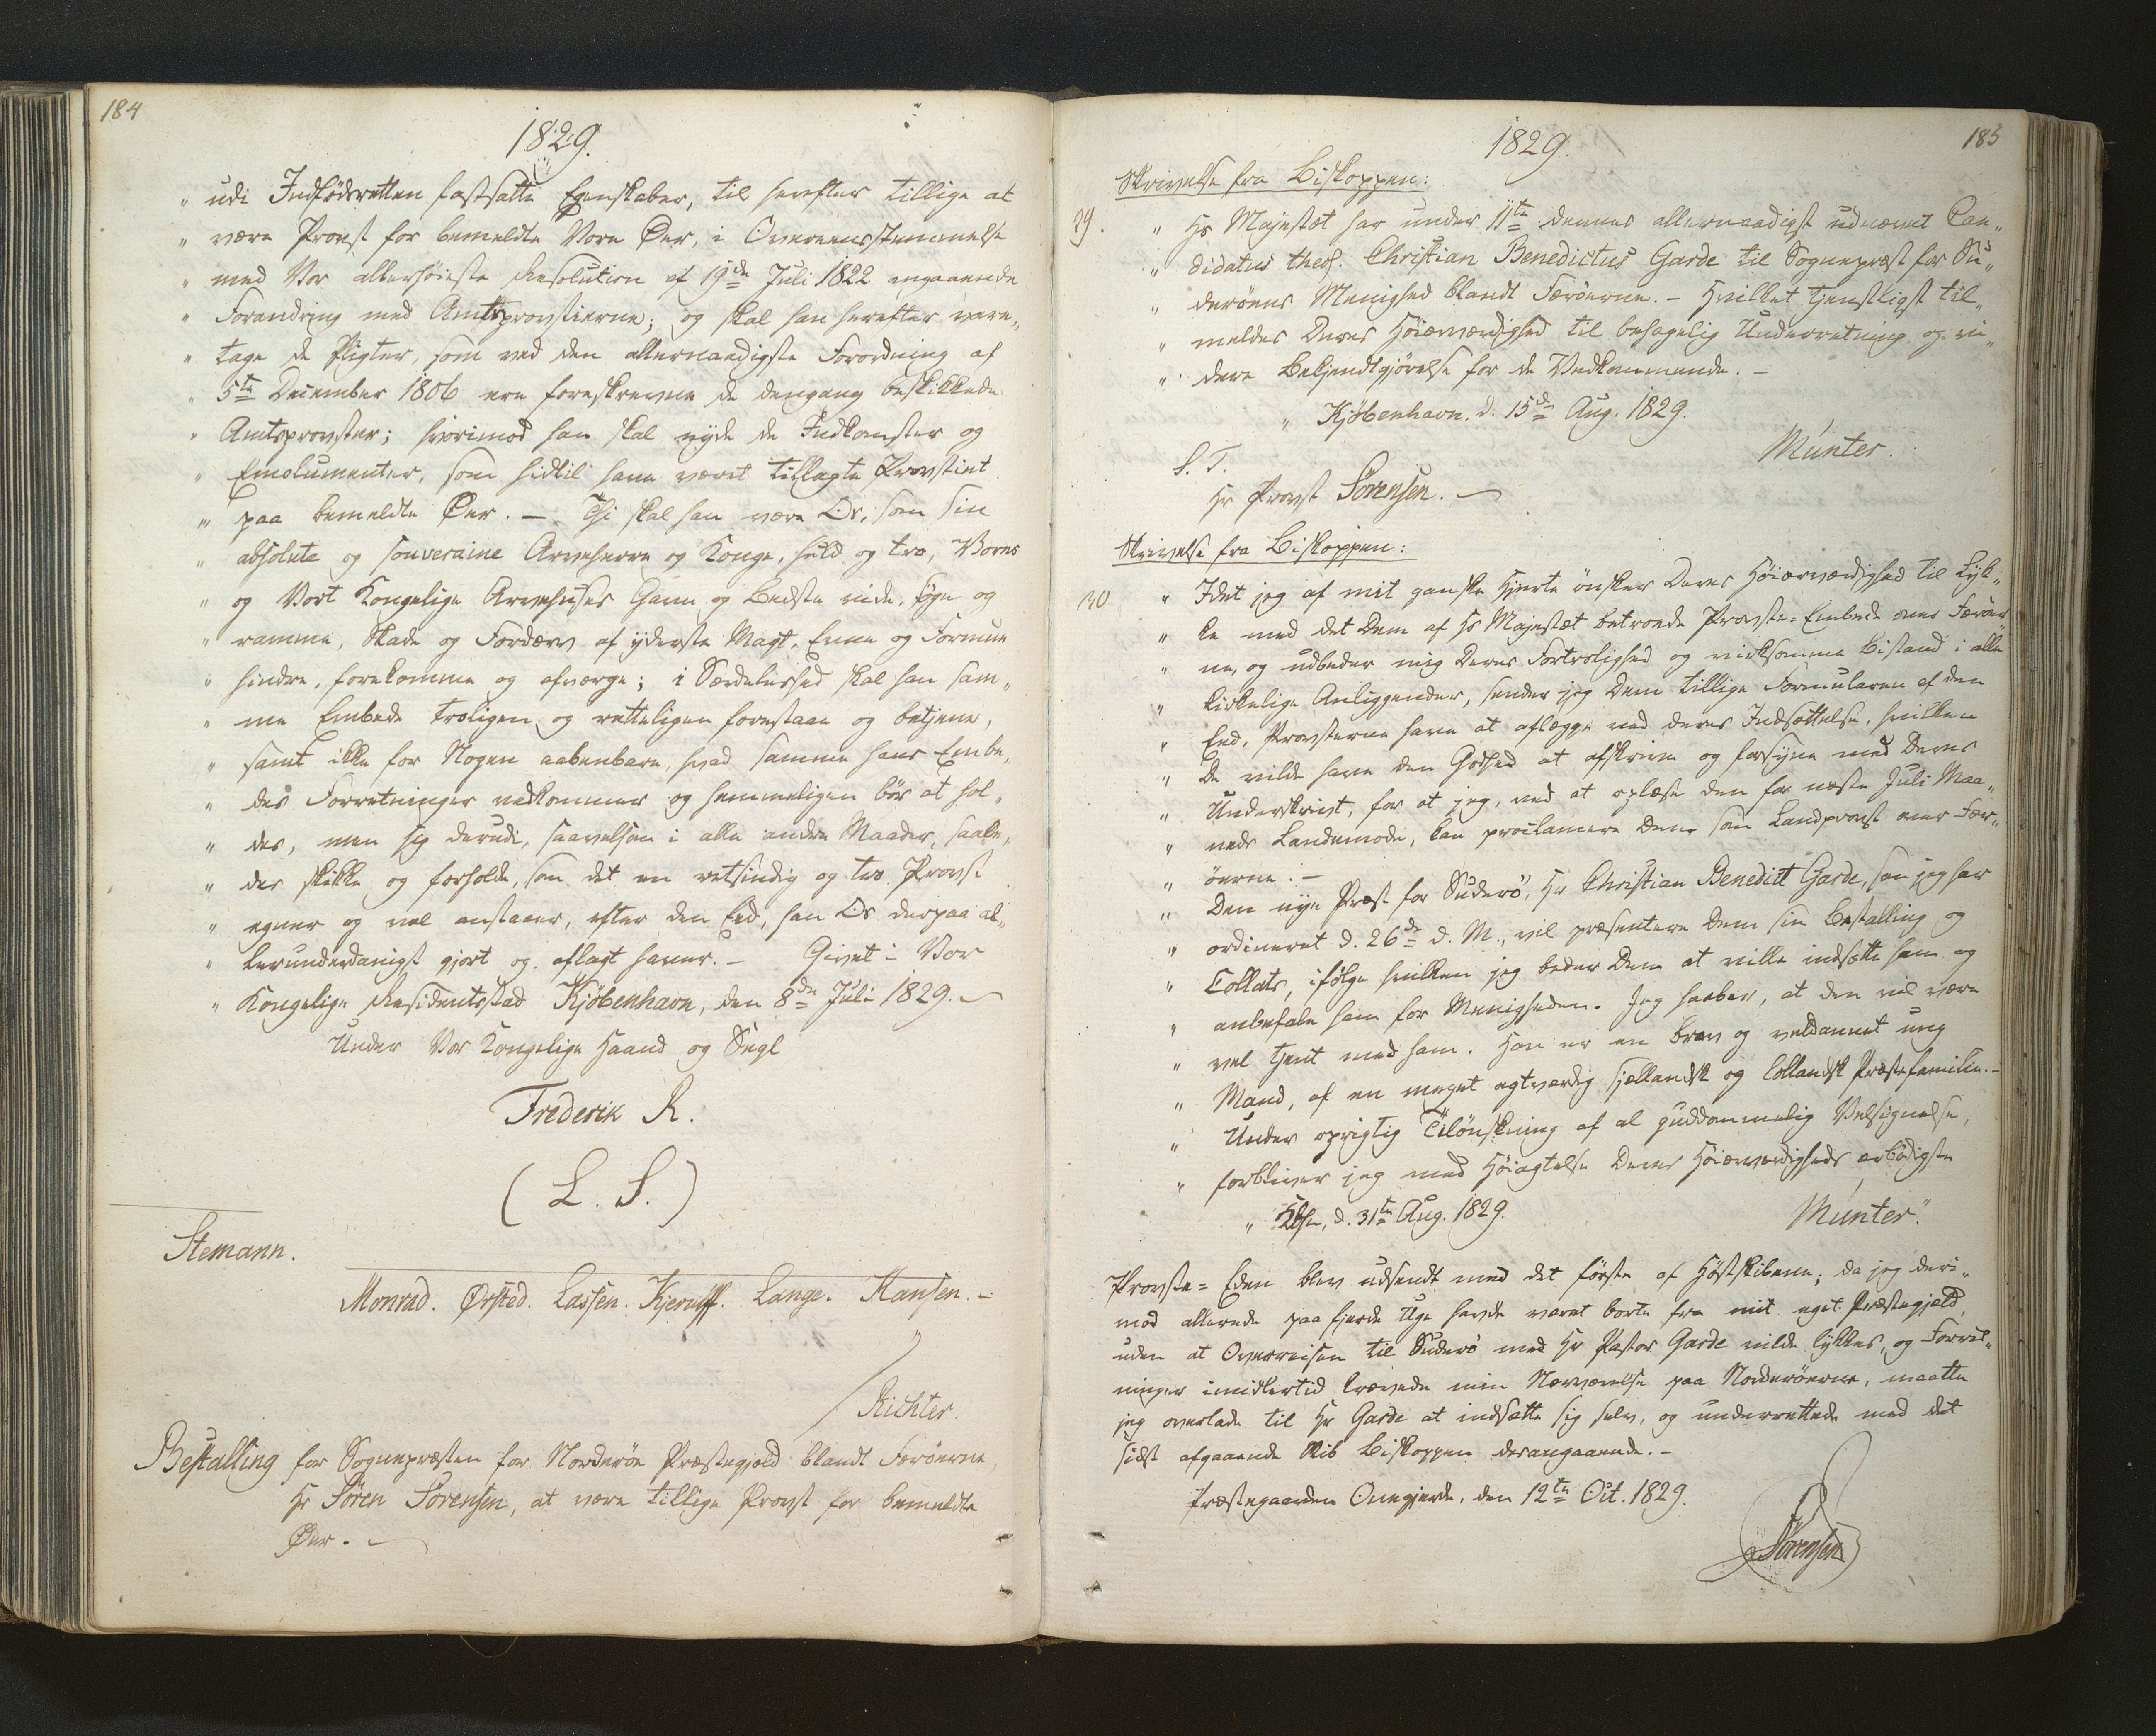 184
1829.
" udi Indfødsretten fastsatte Egenskaber, til herefter tillige at
" være Provst for bemeldte Vore Øer, i Overeensstemmelse
" med Vor allerhøieste Resolution af 19de Juli 1822 angaaende
" Forandring med Amtsprovstierne; og skal han herefter vare„
" tage de Pligter, som ved den allernaadigste Forordning af
" 5te December 1806 ere foreskrevne de dengang beskikkede
" Amtsprovster; hvorimod han skal nyde de Indkomster og
" Emolumenter, som hidtil have været tillagte Provstiet
" paa bemeldte Øer. — Thi skal han være Os, som sin
" absolute og souveraine Arveherre og Konge, huld og tro, Vores
" og Vort Kongelige Arvehuses Gavn og Bedste vide, søge og
" ramme, Skade og Fordærv af yderste Magt, Evne og Formue
" hindre, forekomme og afværge; i Særdeleshed skal han sam„
" me Embede troligen og retteligen forestaae og betjene,
" samt ikke for Nogen aabenbare, hvad samme hans Embe„
" des Forretninger vedkommer og hemmeligen bør at hol„
" des, men sig derudi, saavelsom i alle andre Maader, saale„
" des skikke og forholde, som det en retsindig og tro Provst
" egner og vel anstaaer, efter den Eed, han Os derpaa al„
" lerunderdanigst gjort og aflagt haver. — Givet i Vor
" Kongelige Residentsstad Kjøbenhavn, den 8de Juli 1829. —
Under Vor Kongelige Haand og Segl
Frederik R.
(L. S.)
Stemann.
Monrad. Ørsted. Lassen. Kjerulff. Lange. Hansen. —
/ Richter.
Bestalling for Sognepræsten for Norderøe Præstegjeld blandt Færöerne,
Hr Sören Sörensen, at være tillige Provst for bemeldte
Øer. —
185
1829.
Skrivelse fra Biskoppen:
29. " Hs Majestæt har under 11te dennes allernaadigst udnævnt Can„
" didatus theol. Christian Benedictus Garde til Sognepræst for Su„
" deröens Menighed blandt Færöerne. — Hvilket tjenstligst til„
" meldes Deres Höiærværdighed til behagelig Underretning og vi„
" dere Bekjendtgjörelse for de Vedkommende. —
" Kjöbenhavn, d. 15de Aug. 1829.
Münter.
S. T.
Hr Provst Sörensen. —
Skrivelse fra Biskoppen:
30 " Idet jeg af mit ganske Hjerte önsker Deres Höiærværdighed til Lyk„
" ke med det Dem af Hs Majestæt betroede Provste-Embede over Færöer„
" ne, og udbeder mig Deres Fortrolighed og virksomme Bistand i alle
" kirkelige Anliggender, sender jeg Dem tillige Formularen af den
" Eed, Provsterne have at aflægge ved deres Indsættelse, hvilken
" De vilde have den Godhed at afskrive og forsyne med Deres
" Underskrivt, for at jeg, ved at oplæse den for næste Juli Maa„
" neds Landemode, kan proclamere Dem som Landprovst over Fær„
" öerne. —
" Den nye Præst for Suderö, Hr Christian Benedict Garde, som jeg har
" ordineret d. 26de d. M., vil præsentere Dem sin Bestalling og
" Collats, ifölge hvilken jeg beder Dem at ville indsætte ham og
" anbefale ham for Menigheden. Jeg haaber, at den vil være
" vel tjent med ham. Han er en brav og veldannet ung
" Mand, af en meget agtværdig sjællandsk og lollandsk Præstefamilie. —
" Under oprigtig Tilönskning af al guddommelig Velsignelse,
" forbliver jeg med Höiagtelse Deres Höiærværdigheds ærbödigste
" Kbhn, d. 31te Aug. 1829.
Münter."
Provste-Eden blev udsendt med det förste af Höstskibene; da jeg deri„
mod allerede paa fjerde Uge havde været borte fra mit eget Præstegjeld,
uden at Overreisen til Suderö med Hr Pastor Garde vilde lykkes, og Forret„
ninger imidlertid krævede min Nærværelse paa Norderöerne, maatte
jeg overlade til Hr Garde at indsætte sig selv, og underrettede med det
sidst afgaaende Skib Biskoppen desangaaende. —
Præstegaarden Onegjerde, den 12te Oct. 1829.
Sörensen